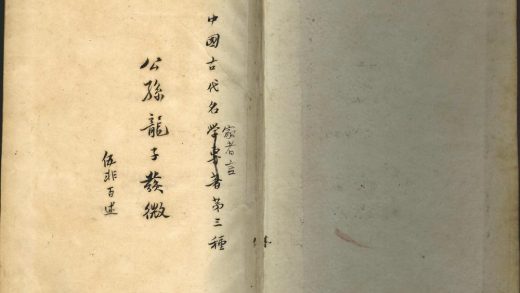 中國古代名學專著第三種
家者言
公孫龍子發微
伍非百述